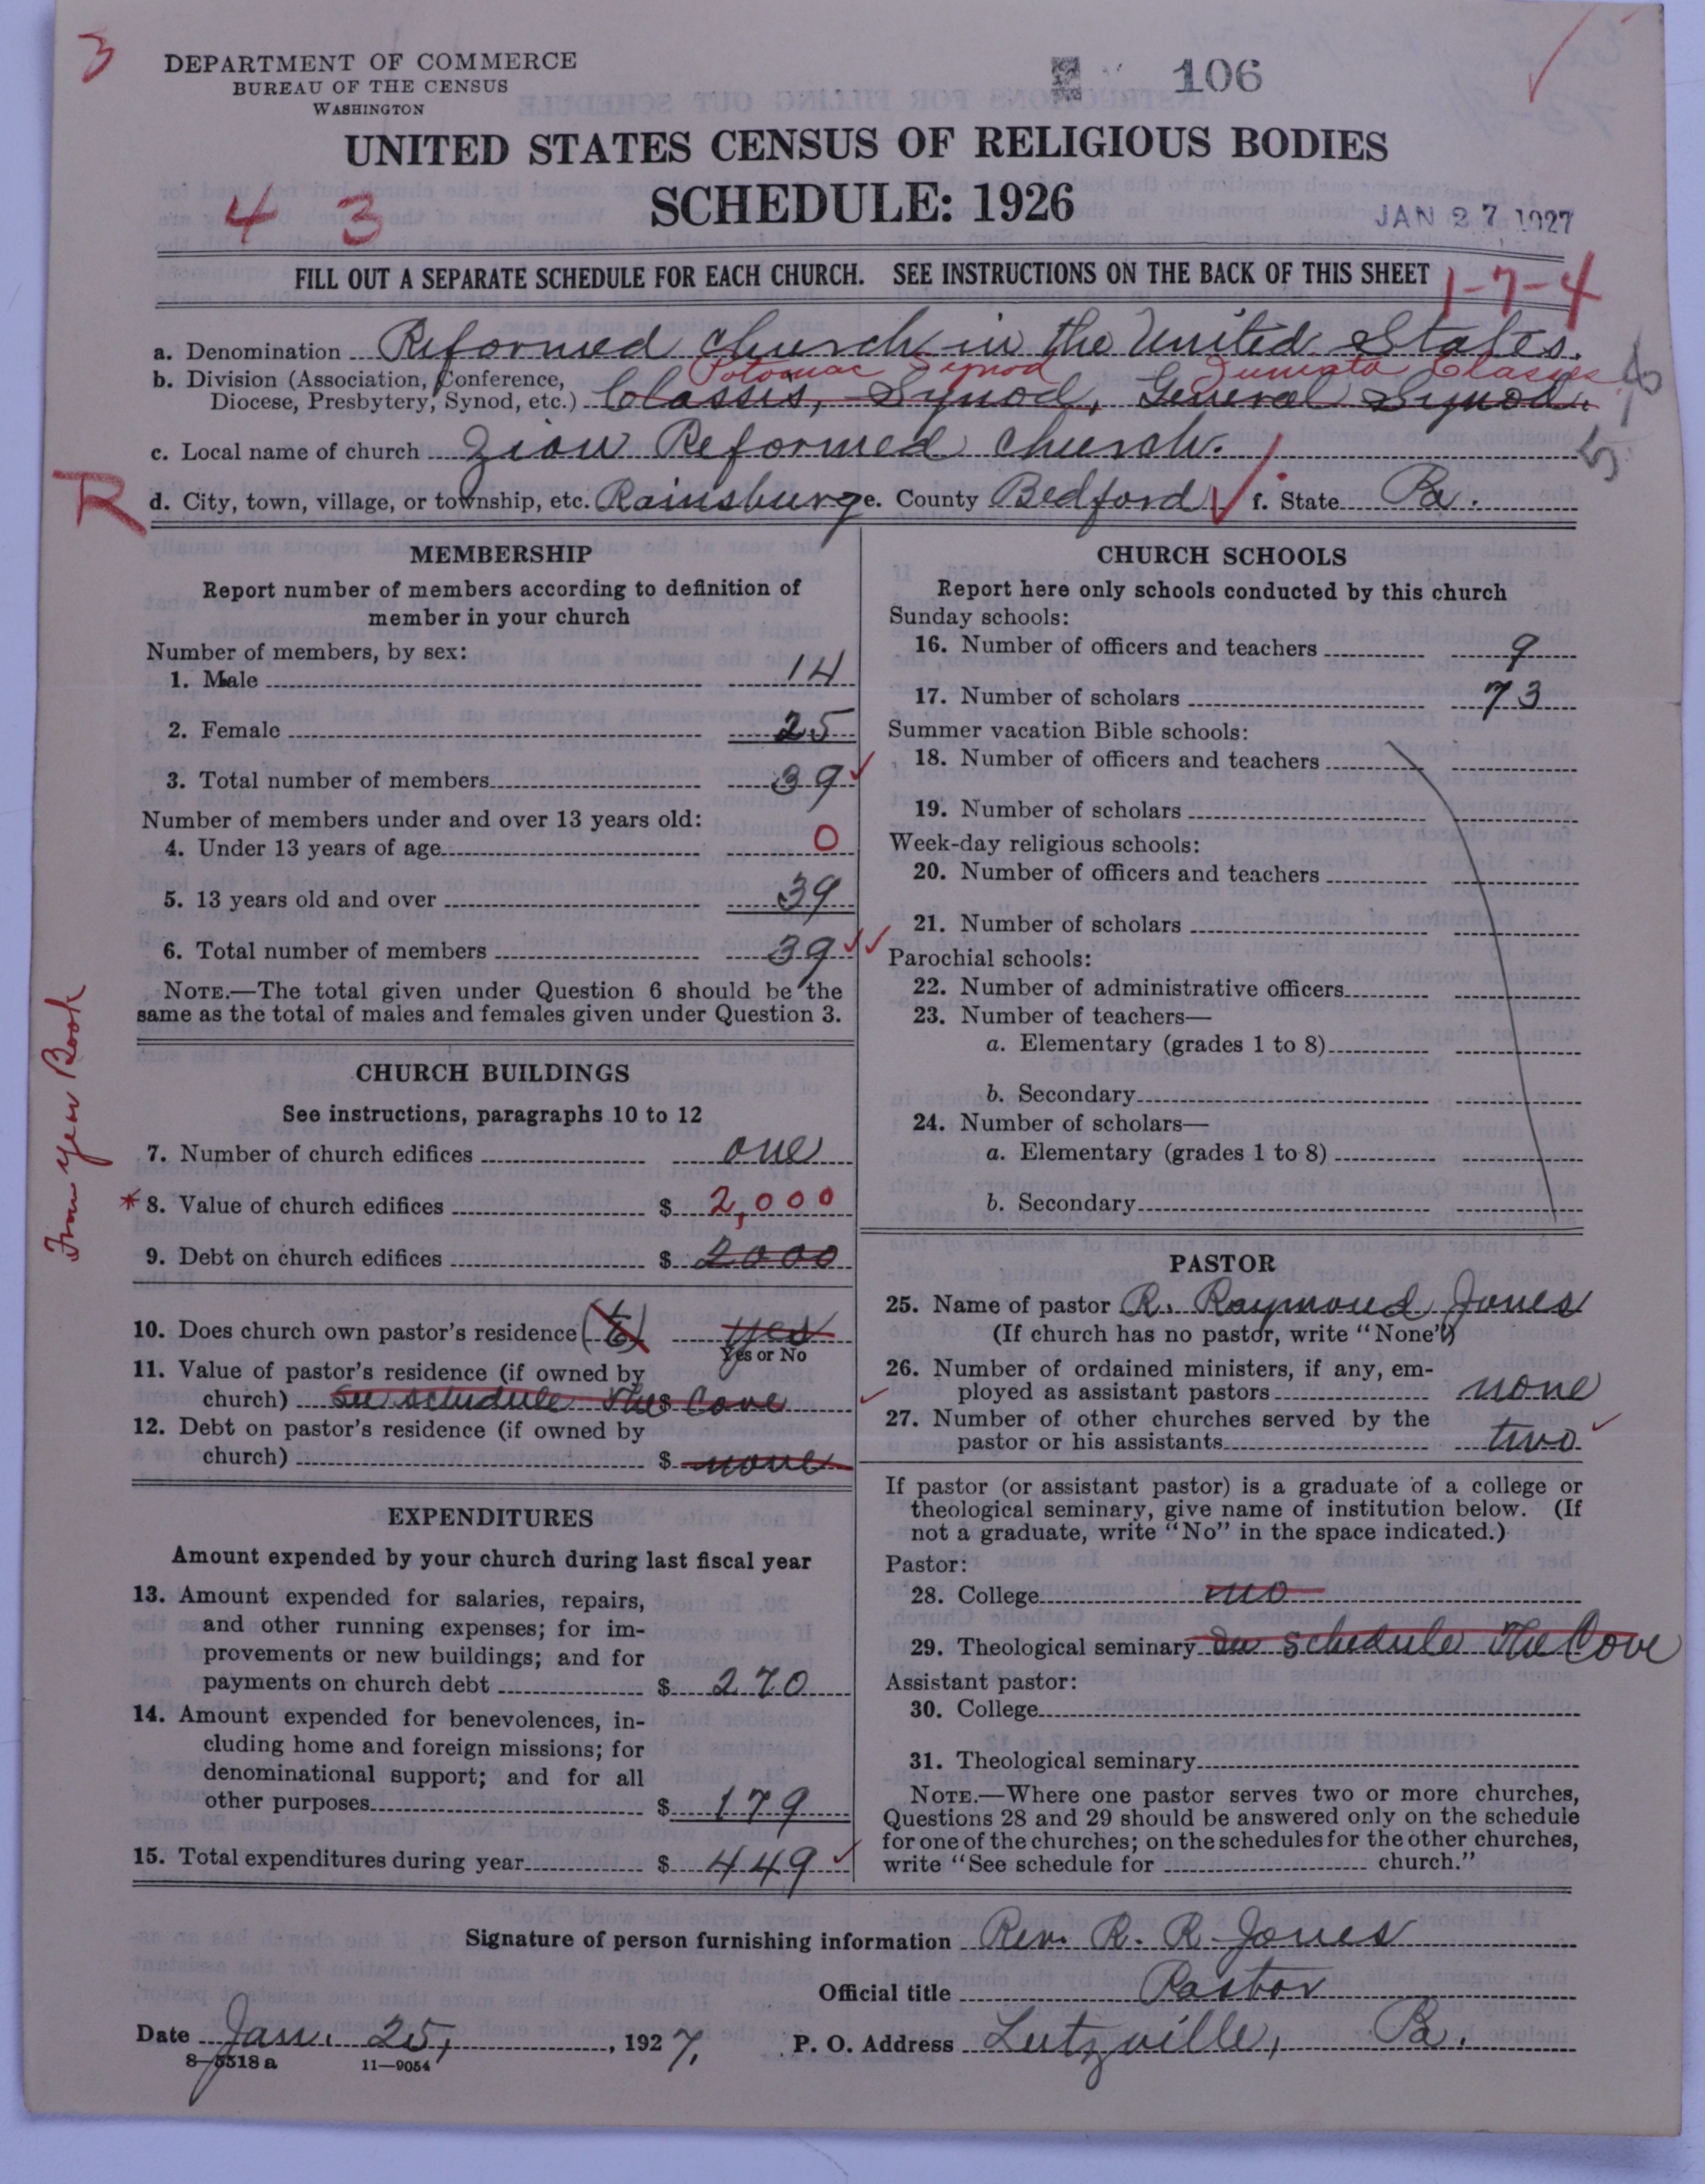 3
DEPARTMENT OF COMMERCE
BUREAU OF THE CENSUS
WASHINGTON
106
UNITED STATES CENSUS OF RELIGIOUS BODIES
SCHEDULE: 1926
4 3
JAN 27 1927
FILL OUT A SEPARATE SCHEDULE FOR EACH CHURCH. SEE INSTRUCTIONS ON THE BACK OF THIS SHEET
1-7-4
a. Denomination Reformed Church in the United States.
Potomac Synod Juniata Classis
b. Division (Association, Conference,
Diocese, Presbytery, Synod, etc.) Classis, Synod, General Synod.
c. Local name of church Zion Reformed Church.
R
d. City, town, village, or township, etc. Rainsburg e. County Bedford f. State Pa.
MEMBERSHIP
Report number of members according to definition of
member in your church
Number of members, by sex:
1. Male 14
2. Female 25
3. Total number of members 39
Number of members under and over 13 years old:
4. Under 13 years of age 0
5. 13 years old and over 39
6. Total number of members 39
NOTE.—The total given under Question 6 should be the
same as the total of males and females given under Question 3.
CHURCH BUILDINGS
See instructions, paragraphs 10 to 12
7. Number of church edifices one
*8. Value of church edifices $ 2,000
9. Debt on church edifices $ 2000
From Year Book
10. Does church own pastor's residence yes
Yes or No
11. Value of pastor's residence (if owned by
church) See schedule The $ Cove
12. Debt on pastor's residence (if owned by
church) $ none
EXPENDITURES
Amount expended by your church during last fiscal year
13. Amount expended for salaries, repairs,
and other running expenses; for im-
provements or new buildings; and for
payments on church debt $ 270
14. Amount expended for benevolences, in-
cluding home and foreign missions; for
denominational support; and for all
other purposes $ 179
15. Total expenditures during year $ 449
CHURCH SCHOOLS
Report here only schools conducted by this church
Sunday schools:
16. Number of officers and teachers 9
17. Number of scholars 73
Summer vacation Bible schools:
18. Number of officers and teachers
19. Number of scholars
Week-day religious schools:
20. Number of officers and teachers
21. Number of scholars
Parochial schools:
22. Number of administrative officers
23. Number of teachers—
a. Elementary (grades 1 to 8)
b. Secondary
24. Number of scholars—
a. Elementary (grades 1 to 8)
b. Secondary
PASTOR
25. Name of pastor R. Raymond Jones
(If church has no pastor, write "None")
26. Number of ordained ministers, if any, em-
ployed as assistant pastors none
27. Number of other churches served by the
pastor or his assistants two
If pastor (or assistant pastor) is a graduate of a college or
theological seminary, give name of institution below. (If
not a graduate, write "No" in the space indicated.)
Pastor:
28. College no
29. Theological seminary See schedule The Cove
Assistant pastor:
30. College
31. Theological seminary
NOTE.—Where one pastor serves two or more churches,
Questions 28 and 29 should be answered only on the schedule
for one of the churches; on the schedules for the other churches,
write "See schedule for church."
Signature of person furnishing information Rev. R. R. Jones
Official title Pastor
Date Jan. 25, 1927. P. O. Address Lutzville, Pa.
8-5518 a 11-9054